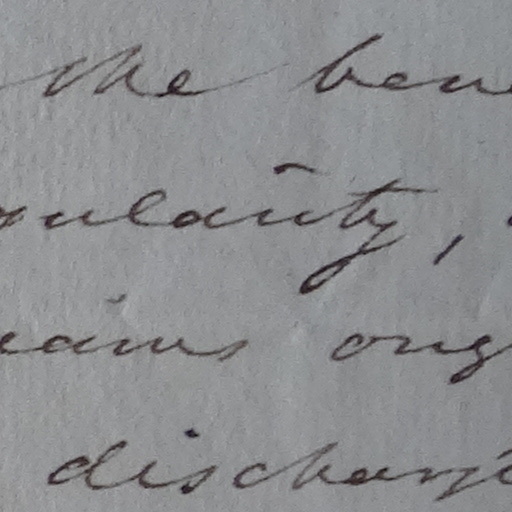 the ben
gularity,
eains oug
discharg